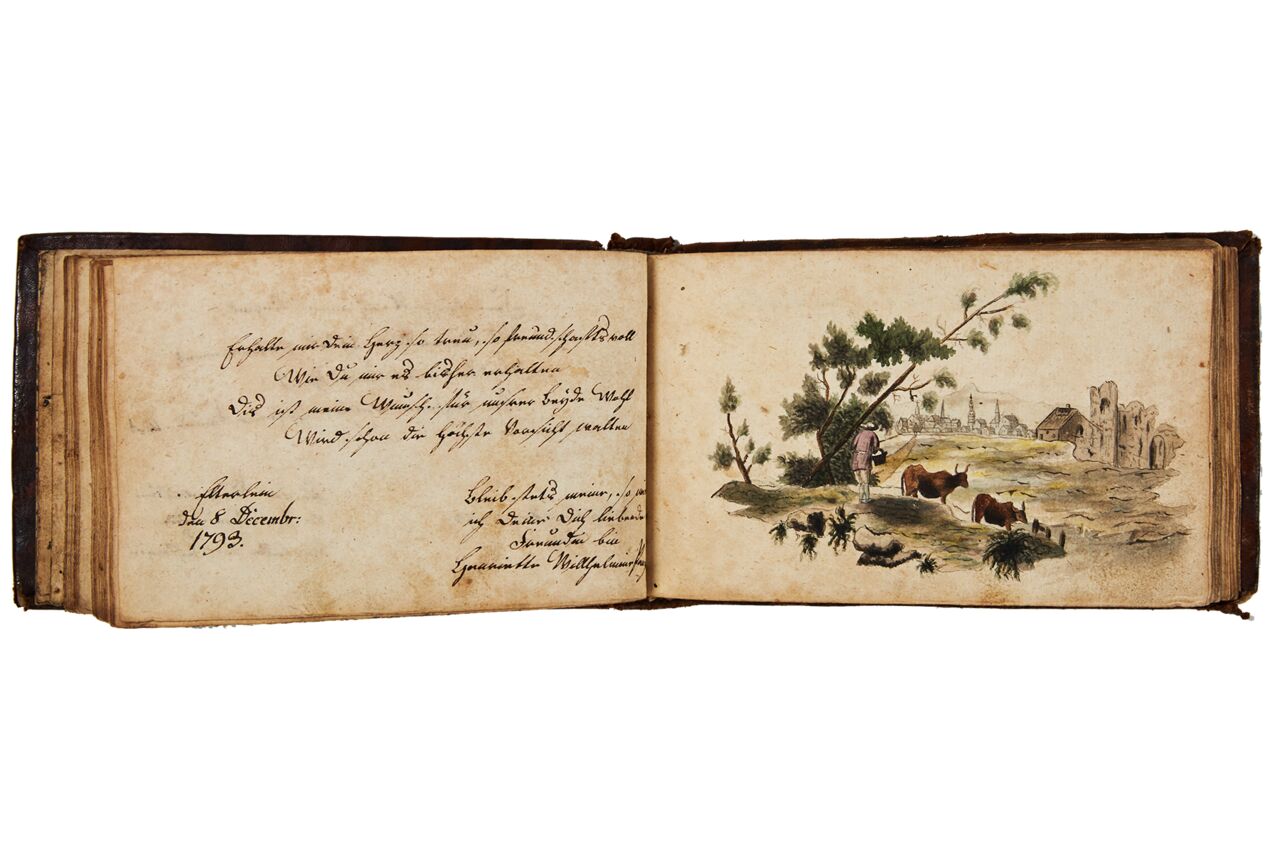 Erhalte mir dein Herz so treu, so freundschaftsvoll
Wie Du mir es bisher erhalten
Dies ist mein Wunsch für unsrer beyde Wohl
Wird schon die Höchste Vorsicht walten
Elterlein
den 8 Decembr:
1793.
Bleib stets meine, so wie
ich Deine Dich liebende
Freundin bin
Henriette Willhelmine